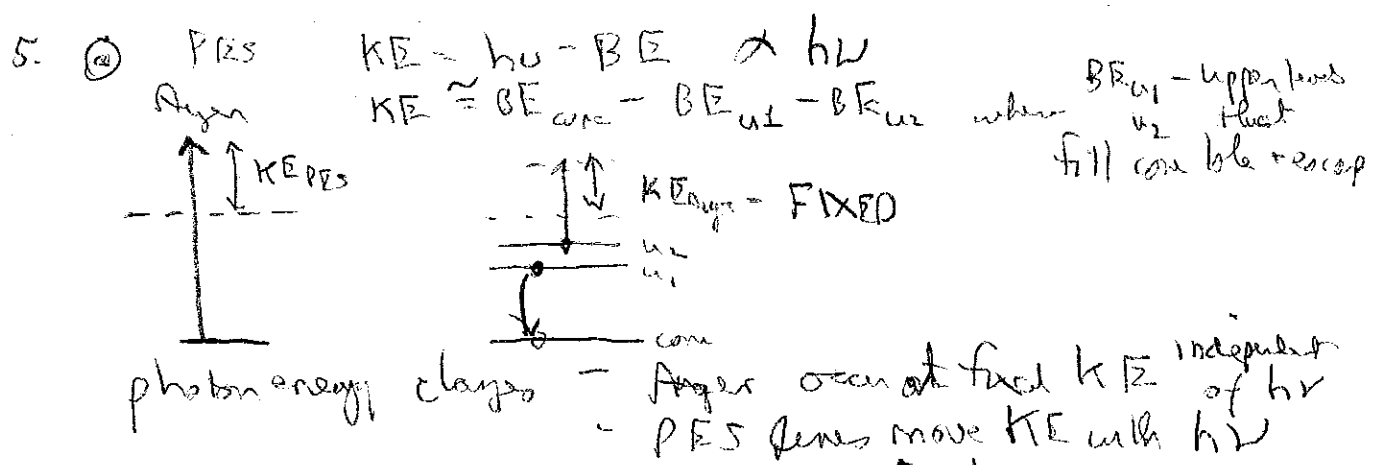 5. (a) PES KE = hν - BE ∝ hν
Auger KE ≅ BE core - BE u1 - BE u2 where BE u1 - upper levels
u2 that
fill core hole + escape
KE PES
KE Auger - FIXED
u2
u1
core
photon energy changes - Auger occur at fixed KE independent of hν
- PES lines move KE with hν